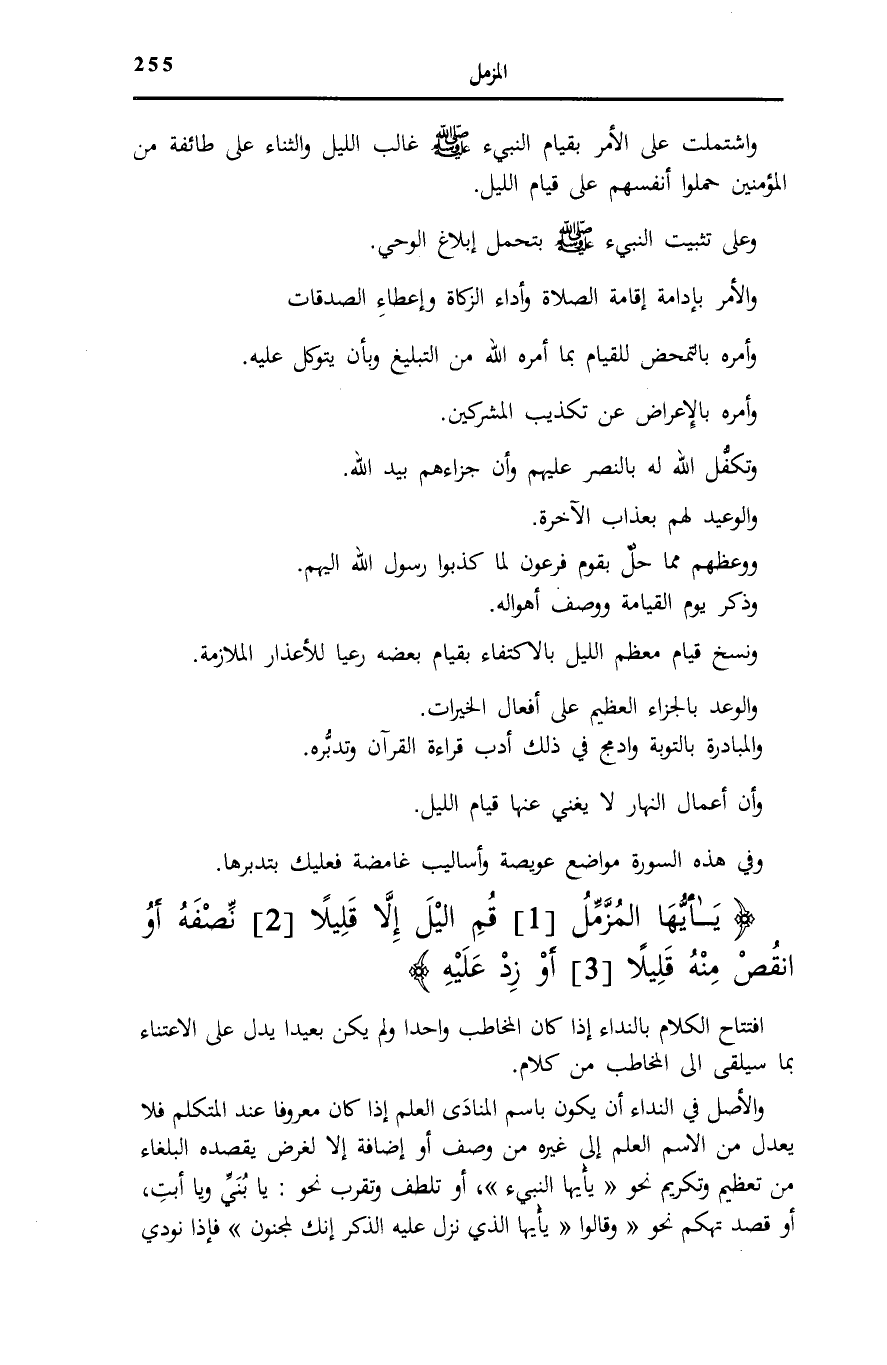 255
المزمل
واشتملت على الأمر بقيام النبيء ﷺ غالب الليل والثناء على طائفة من
المؤمنين حملوا أنفسهم على قيام الليل.
وعلى تثبيت النبيء ﷺ بتحمل إبلاغ الوحي.
والأمر بإدامة إقامة الصلاة وأداء الزكاة وإعطاء الصدقات
وأمره بالتمحض للقيام بما أمره الله من التبليغ وبأن يتوكل عليه.
وأمره بالإعراض عن تكذيب المشركين.
وتكفُّل الله له بالنصر عليهم وأن جزاءهم بيد الله.
والوعيد لهم بعذاب الآخرة.
ووعظهم مما حلّ بقوم فرعون لما كذبوا رسول الله اليهم.
وذكر يوم القيامة ووصف أهواله.
ونسخ قيام معظم الليل بالاكتفاء بقيام بعضه رعيا للأعذار الملازمة.
والوعد بالجزاء العظيم على أفعال الخيرات.
والمبادرة بالتوبة وادمج في ذلك أدب قراءة القرآن وتدبُّره.
وأن أعمال النهار لا يغني عنها قيام الليل.
وفي هذه السورة مواضع عويصة وأساليب غامضة فعليك بتدبرها.
﴿ يَـٰأَيُّهَا المُزَّمِّلُ [1] قُمِ اليْلَ إِلَّا قَلِيلًا [2] نِّصْفَهُ أَوُ
انقُصْ مِنْهُ قَلِيلًا [3] أَوْ زِدْ عَلَيْهِ ﴾
افتتاح الكلام بالنداء إذا كان المخاطب واحدا ولم يكن بعيدا يدل على الاعتناء
بما سيلقى الى المخاطب من كلام.
والأصل في النداء أن يكون باسم المنادَى العلم إذا كان معروفا عند المتكلم فلا
يعدل من الاسم العلم إلى غيره من وصف أو إضافة إلا لغرض يقصده البلغاء
من تعظيم وتكريم نحو « يأيها النبيء »، أو تلطف وتقرب نحو : يا بُنَيِّ ويا أبتِ،
أو قصد تهكم نحو « وقالوا « يأيها الذي نزل عليه الذكر إنك لمجنون » فإذا نودي